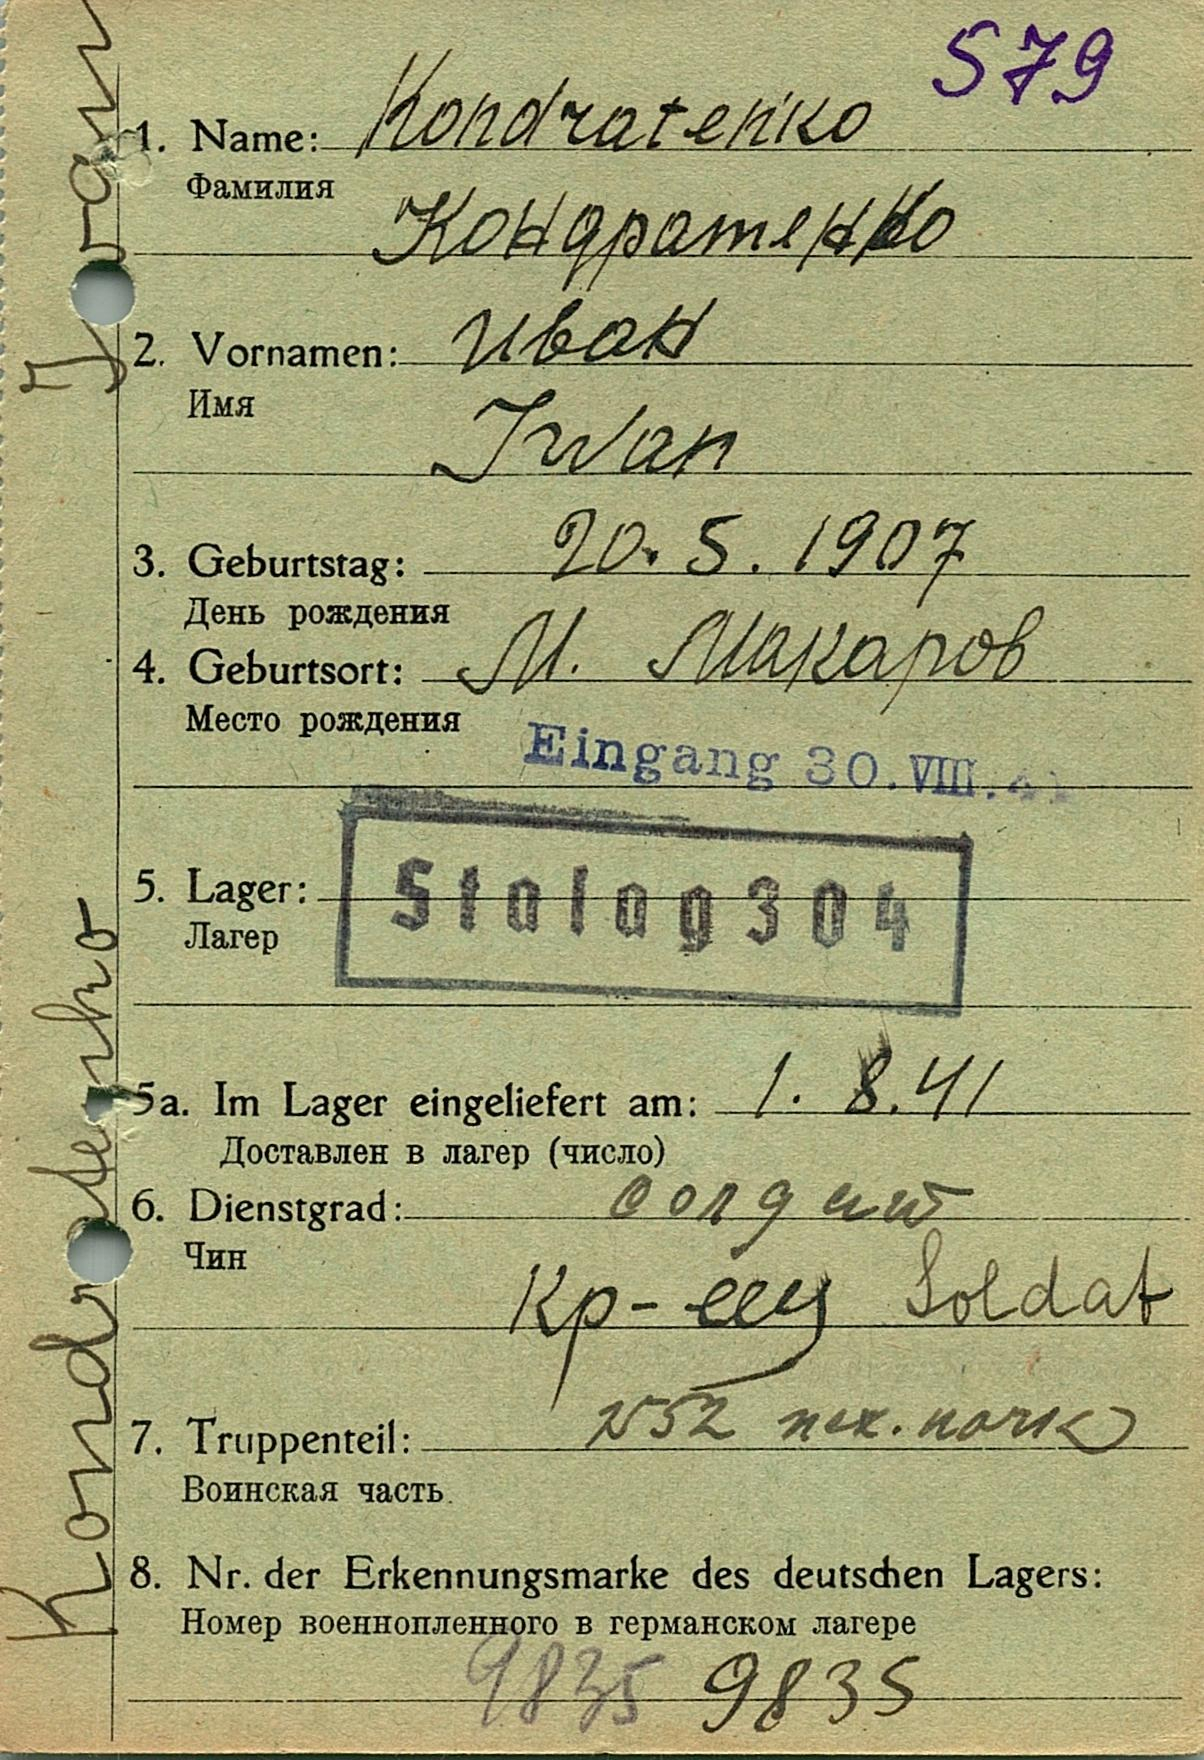 579
1. Name: Kondratenko
Фамилия
Кондратенко
2. Vornamen: Иван
Имя
Iwan
3. Geburtstag: 20. 5. 1907
День рождения
4. Geburtsort: М. Макаров
Место рождения
Eingang 30. VIII. 41
5. Lager: Stalag 304
Лагер
5a. Im Lager eingeliefert am: 1. 8. 41
Доставлен в лагер (число)
6. Dienstgrad: солдат
Чин
Кр-ец Soldat
7. Truppenteil: 552
Воинская часть
8. Nr. der Erkennungsmarke des deutschen Lagers:
Номер военнопленного в германском лагере
9835 9835
Kondratenko Iwan